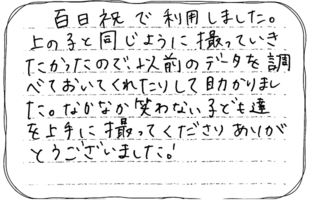 百日祝で利用しました。
上の子と同じように撮っていき
たかったので、以前のデータを調
べておいてくれたりして助かりまし
た。なかなか笑わない子ども達
を上手に撮ってくださりありが
とうございました!